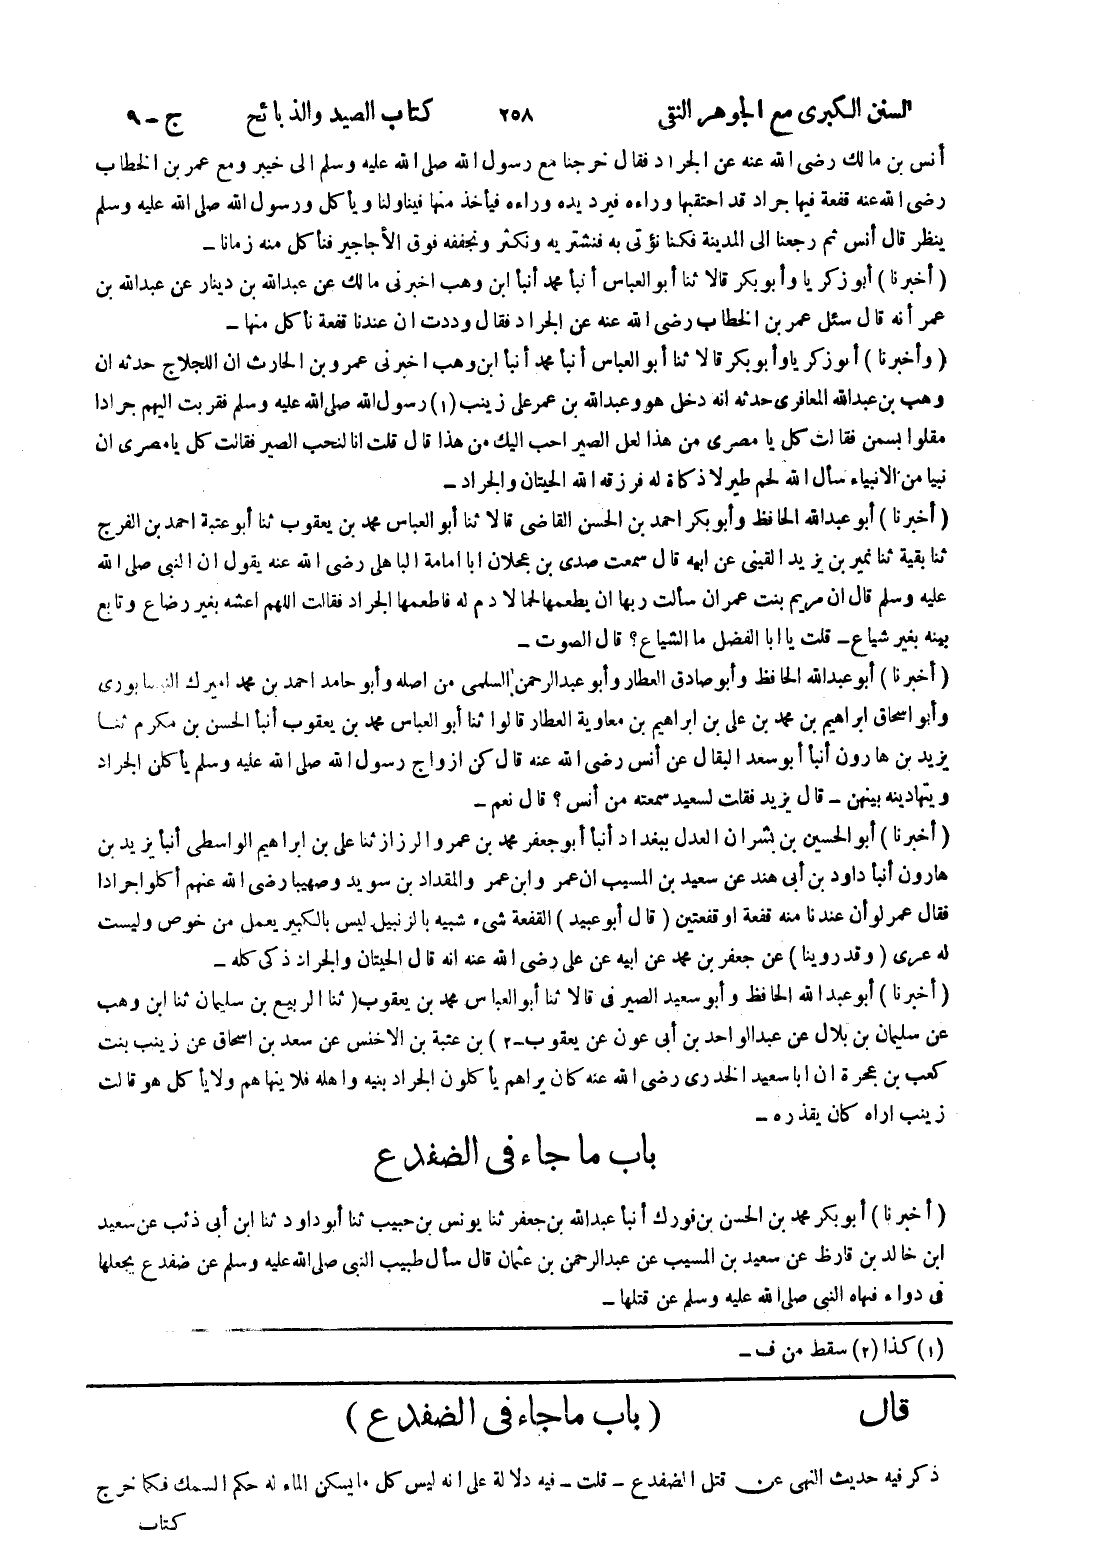 السنن الكبرى مع الجوهر النقى ٢٥٨ كتاب الصيد والذبائح ج-٩
أنس بن مالك رضى الله عنه عن الجراد فقال خرجنا مع رسول الله صلى الله عليه وسلم الى خيبر ومع عمر بن الخطاب
رضى الله عنه قفعة فيها جراد قد احتقبها وراءه فيرد يده وراءه فيأخذ منها فيناولنا ويأكل ورسول الله صلى الله عليه وسلم
ينظر قال أنس ثم رجعنا الى المدينة فكنا نؤتى به فنشتريه ونكثر ونجففه فوق الأجاجير فنأكل منه زمانا -
(أخبرنا) أبو زكريا وأبوبكر قالا ثنا أبو العباس أنبأ محمد أنبأ ابن وهب اخبرنى مالك عن عبدالله بن دينار عن عبدالله بن
عمر أنه قال سئل عمر بن الخطاب رضى الله عنه عن الجراد فقال وددت ان عندنا قفعة نأكل منها -
(وأخبرنا) أبو زكريا وأبوبكر قالا ثنا أبو العباس أنبأ محمد أنبأ ابن وهب اخبرنى عمرو بن الحارث ان اللجلاج حدثه ان
وهب بن عبدالله المعافرى حدثه انه دخل هو وعبدالله بن عمر على زينب (١) رسول الله صلى الله عليه وسلم فقربت اليهم جرادا
مقلوا بسمن فقالت كل يا مصرى من هذا لعل الصير احب اليك من هذا قال قلت انا لنحب الصير فقالت كل يا مصرى ان
نبيا من الانبياء سأل الله لحم طير لا ذكاة له فرزقه الله الحيتان والجراد -
(أخبرنا) أبو عبدالله الحافظ وأبو بكر احمد بن الحسن القاضى قالا ثنا أبو العباس محمد بن يعقوب ثنا أبو عتبة احمد بن الفرج
ثنا بقية ثنا نمير بن يزيد القينى عن ابيه قال سمعت صدى بن عجلان ابا امامة الباهلى رضى الله عنه يقول ان النبى صلى الله
عليه وسلم قال ان مريم بنت عمران سألت ربها ان يطعمها لحما لا دم له فاطعمها الجراد فقالت اللهم اعشه بغير رضاع وتابع
بينه بغير شياع - قلت يا ابا الفضل ما الشياع؟ قال الصوت -
(أخبرنا) أبو عبدالله الحافظ وأبو صادق العطار وأبو عبدالرحمن السلمى من اصله وأبو حامد احمد بن محمد اميرك النيسابورى
وأبو اسحاق ابراهيم بن محمد بن على بن ابراهيم بن معاوية العطار قالوا ثنا أبو العباس محمد بن يعقوب أنبأ الحسن بن مكرم ثنا
يزيد بن هارون أنبأ أبو سعد البقال عن أنس رضى الله عنه قال كن ازواج رسول الله صلى الله عليه وسلم يأكلن الجراد
ويتهادينه بينهن - قال يزيد فقلت لسعيد سمعته من أنس؟ قال نعم -
(أخبرنا) أبو الحسين بن بشران العدل ببغداد أنبأ أبو جعفر محمد بن عمرو الرزاز ثنا على بن ابراهيم الواسطى أنبأ يزيد بن
هارون أنبأ داود بن أبى هند عن سعيد بن المسيب ان عمر وابن عمر والمقداد بن سويد وصهيبا رضى الله عنهم أكلوا جرادا
فقال عمر لو أن عندنا منه قفعة او قفعتين (قال أبو عبيد) القفعة شىء شبيه بالزنبيل ليس بالكبير يعمل من خوص وليست
له عرى (وقد روينا) عن جعفر بن محمد عن ابيه عن على رضى الله عنه انه قال الحيتان والجراد ذكى كله -
(أخبرنا) أبو عبد الله الحافظ وأبو سعيد الصيرفى قالا ثنا أبو العباس محمد بن يعقوب (ثنا الربيع بن سليمان ثنا ابن وهب
عن سليمان بن بلال عن عبدالواحد بن أبى عون عن يعقوب-٢) بن عتبة بن الاخنس عن سعد بن اسحاق عن زينب بنت
كعب بن عجرة ان ابا سعيد الخدرى رضى الله عنه كان يراهم يأكلون الجراد بنيه واهله فلا ينهاهم ولا يأكل هو قالت
زينب اراه كان يقذره -
باب ما جاء فى الضفدع
(أخبرنا) أبو بكر محمد بن الحسن بن فورك أنبأ عبدالله بن جعفر ثنا يونس بن حبيب ثنا أبو داود ثنا ابن أبى ذئب عن سعيد
ابن خالد بن قارظ عن سعيد بن المسيب عن عبدالرحمن بن عثمان قال سأل طبيب النبى صلى الله عليه وسلم عن ضفدع يجعلها
فى دواء فنهاه النبى صلى الله عليه وسلم عن قتلها -
(١) كذا (٢) سقط من ف -
قال (باب ما جاء فى الضفدع)
ذكر فيه حديث النهى عن قتل الضفدع - قلت - فيه دلالة على انه ليس كل ما يسكن الماء له حكم السمك فكما خرج
كتاب